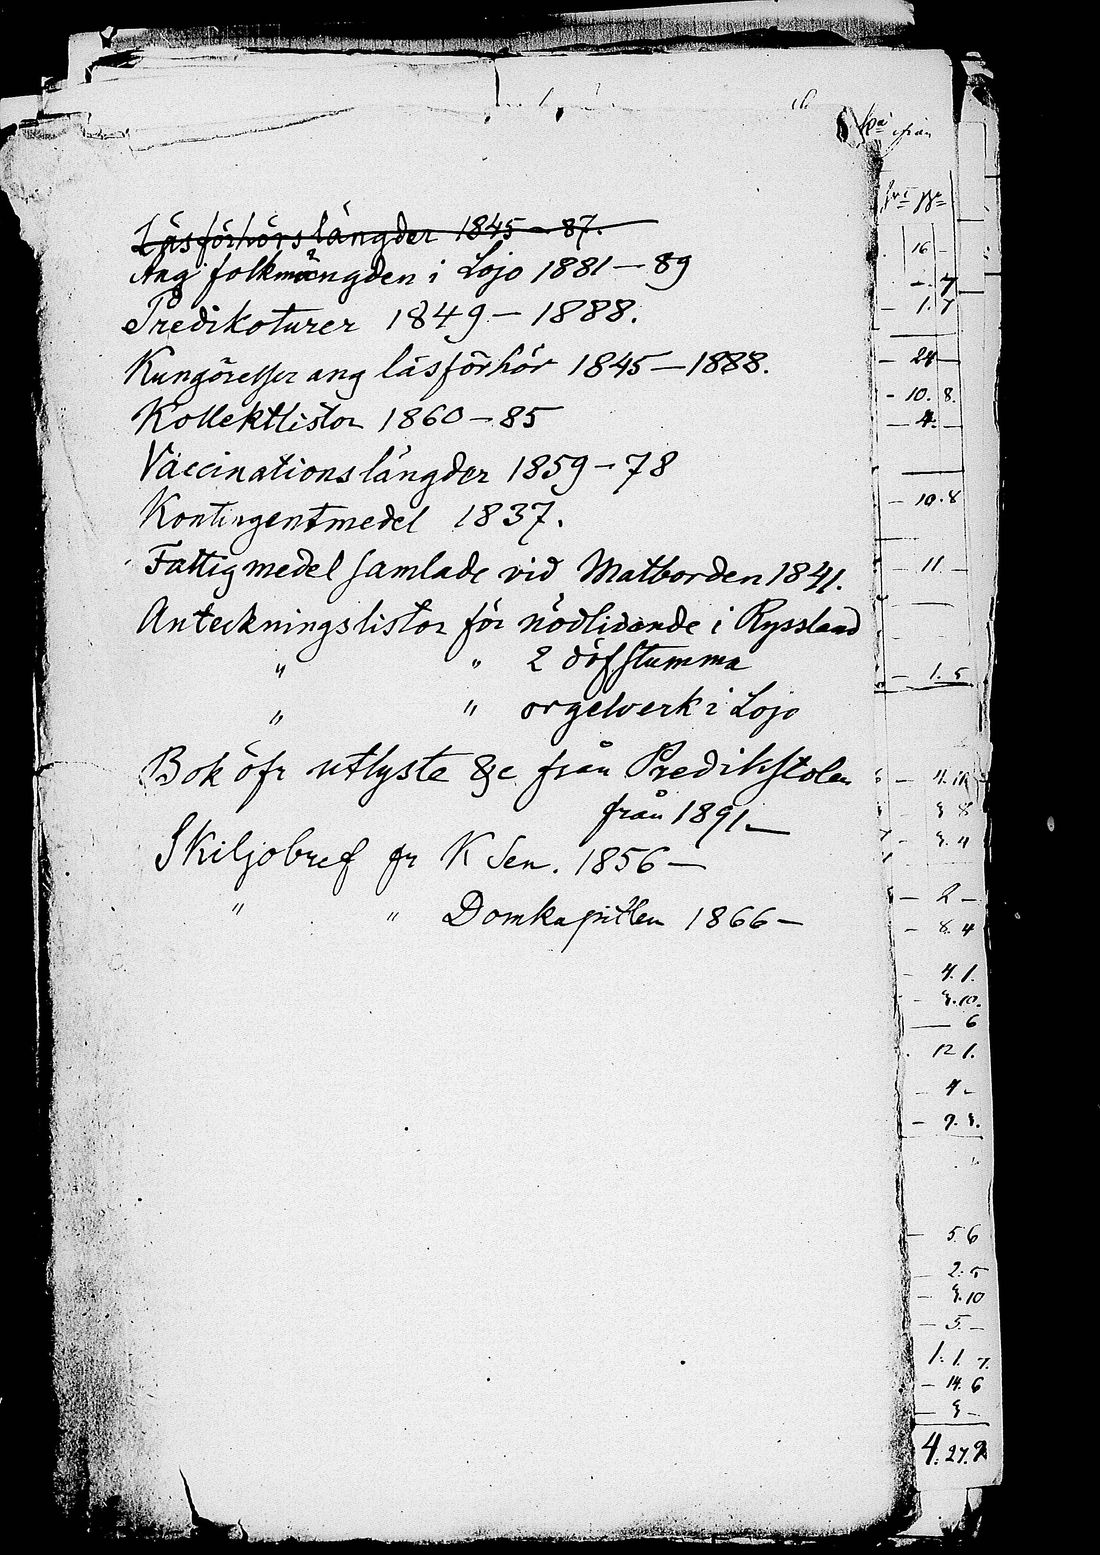 Läsförhörslängder 1845 – 87.
Ang folkmängden i Lojo 1881 – 89
Predikoturer 1849 – 1888.
Kungörelser ang läsförhör 1845 – 1888.
Kollektlistor 1860 – 85
Vaccinationslängder 1859 – 78
Kontingentmedel 1837.
Fattigmedel samlade vid Matborden 1841.
Anteckningslistor för nödlidande i Ryssland
" " 2 döfstumma
" " orgelverk i Lojo
Bok öfr utlyste &c från Predikstolen
från 1891 –
Skiljobref fr K Sen. 1856 –
" " Domkapitlen 1866 –
från
16 –
– 7
– 1.7
– 24 –
– 10. 8.
– 4. –
– 10. 8
– 11 –
– 1. 5
– 2 –
– 8. 4
– 4. 1.
6
12 1.
– 4 –
– 5 6
– 2. 5
– 5. –
1. 1. 7.
– 14. 6
4. 27. 9